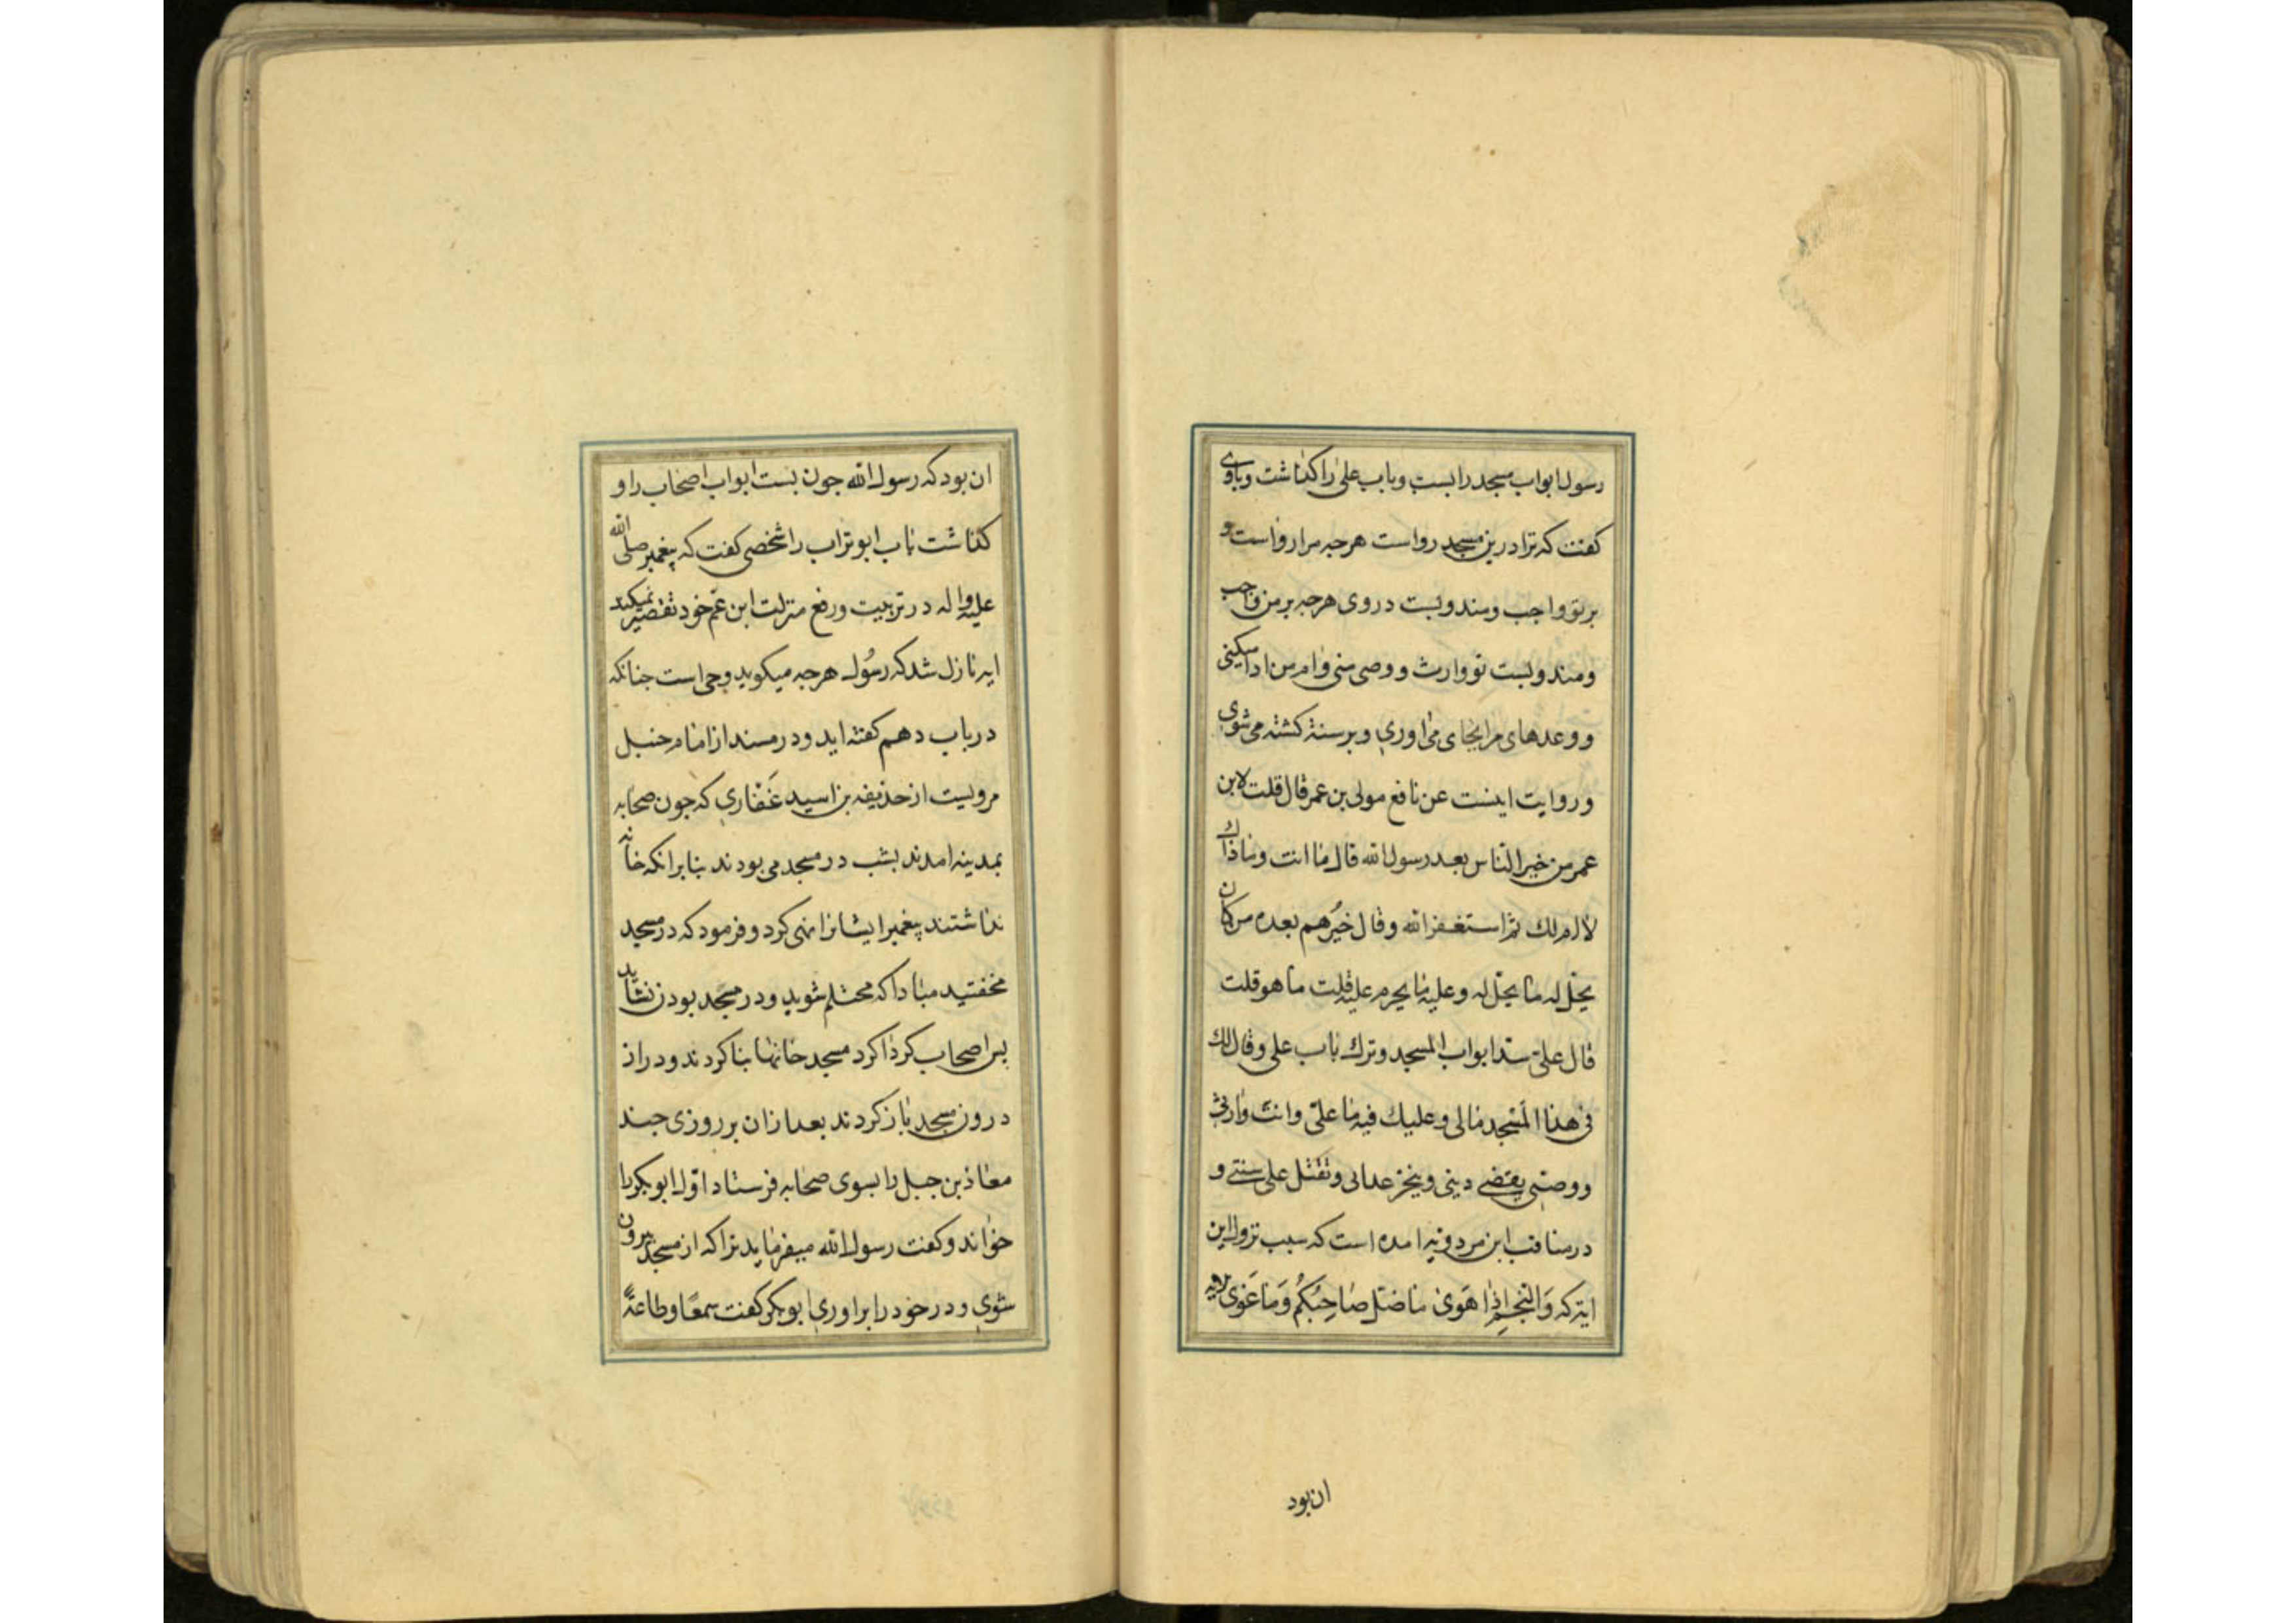 رسول ابواب مسجد را بست و باب علی را کذاشت و باوی
کفت که ترا درین مسجد رواست هرجه مرا رواست و
بر تو واجب و مندوبست دروی هرجه بر من واجب
و مندوبست تو وارث و وصی منی وام من ادا میکنی
و وعدهای مرا بجای می اوری و بر سنة کشته می شوی
و روایت اینست عن نافع مولی بن عمر قال قلت لابن
عمر من خیر الناس بعد رسول الله قال ما انت وماذاك
لا ام لك ثم استغفر الله وقال خیرهم بعده من کان
یحل له ما یحل له وعلیه ما یحرم علیه قلت ما هو قلت
قال علی سد ابواب المسجد وترك باب علی وقال لك
فی هذا المسجد مالی وعلیك فیه ما علی وانت وارثی
ووصیی یقضی دینی وینجز عداتی وتقتل علی سنتی و
در مناقب ابن مردویه امده است که سبب نزول این
ایة که وَالنجمِ اِذا هَوی ما ضَلّ صاحِبُکُم وَما غَوی الایه
ان بود
ان بود که رسول الله جون بست ابواب اصحاب را و
کذاشت باب ابوتراب را شخصی کفت که پیغمبر صلی الله
علیه واله در تربیت و رفع منزلت ابن عم خود تقصیر نمیکند
ایه نازل شد که رسُول هرجه میکوید وحی است جنانکه
در باب دهم کفته اید و در مسند از امام حنبل
مرویست از حذیفه بن اسید غَفاری که جون صحابه
بمدینه امدند بشب در مسجد می بودند بنابر انکه خانه
نداشتند پیغمبر ایشانرا نهی کرد و فرمود که در مسجد
مخفتید مبادا که محتلم شوید و در مسجد بودن نشاید
بس اصحاب کردا کرد مسجد خانها بنا کردند و در از
درون مسجد باز کردند بعد ازان بر روزی جند
معاذ بن جبل را بسوی صحابه فرستاد اوّل ابوبکر را
خواند و کفت رسول الله میفرماید ترا که از مسجد بیرون
شوی و در خود را براوری ابوبکر کفت سمعًا وطاعةً